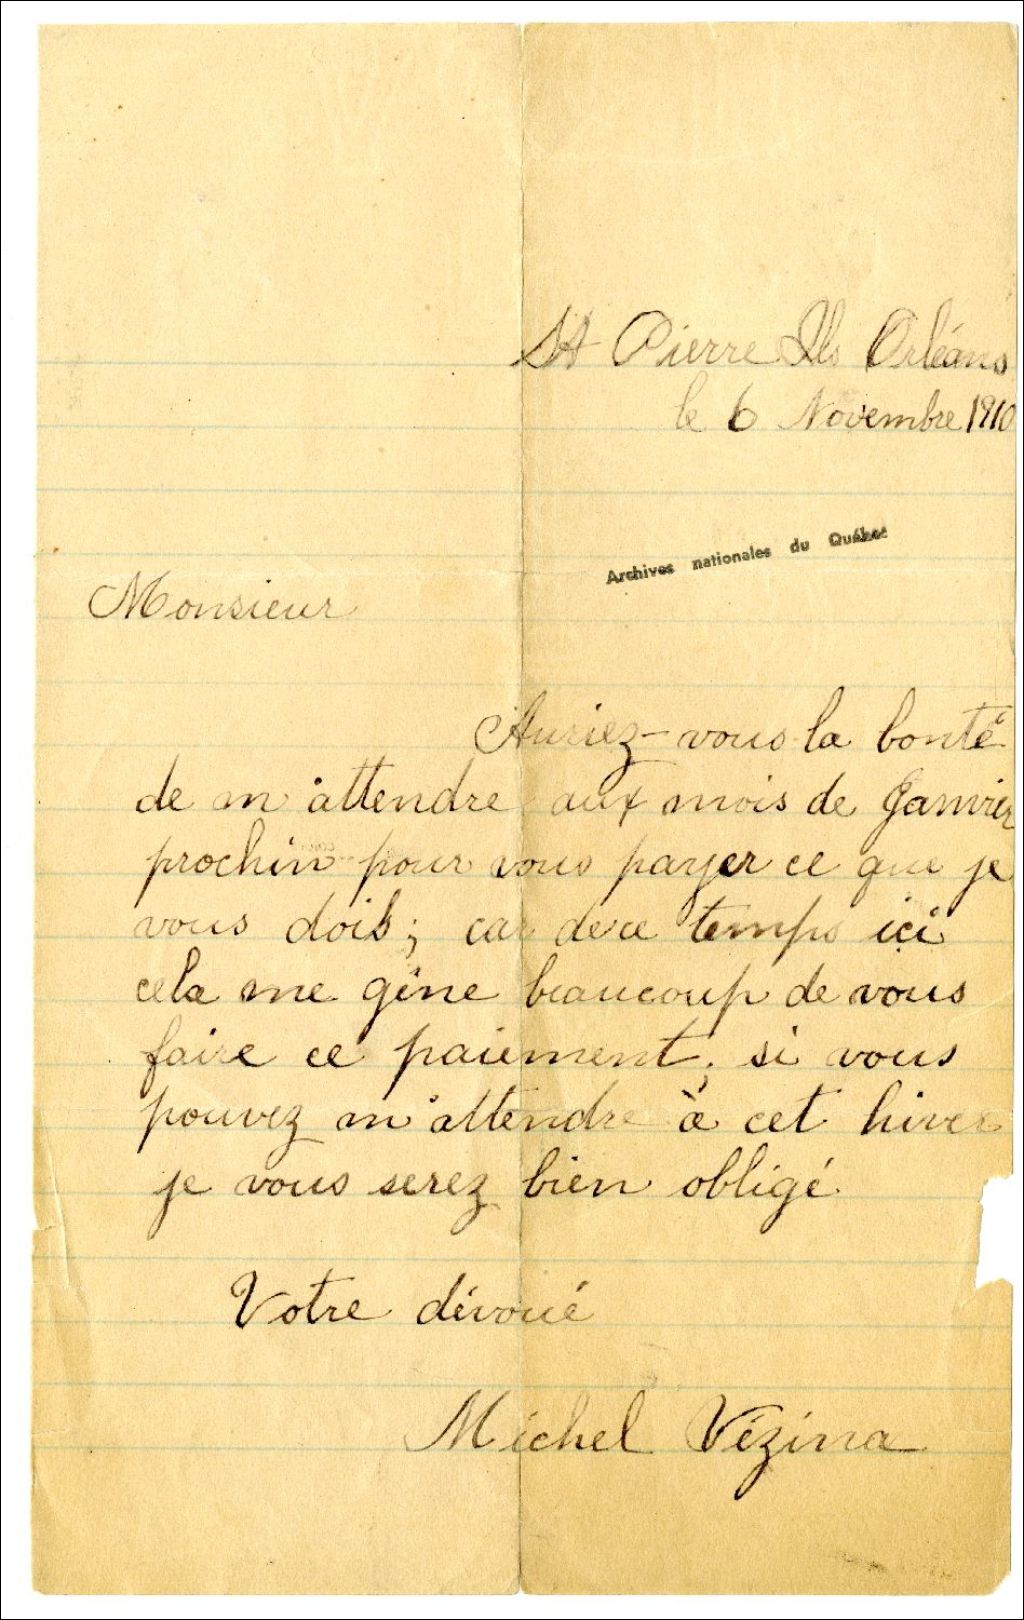 St Pierre Ile Orléans
le 6 Novembre 1910
Archives nationales du Québec
Monsieur
Auriez-vous la bonté
de m'attendre aux mois de Janvier
prochin pour vous payer ce que je
vous dois; car de ce temps ici
cela me gêne beaucoup de vous
faire ce paiement; si vous
pouvez m'attendre à cet hiver
je vous serez bien obligé
Votre dévoué
Michel Vézina